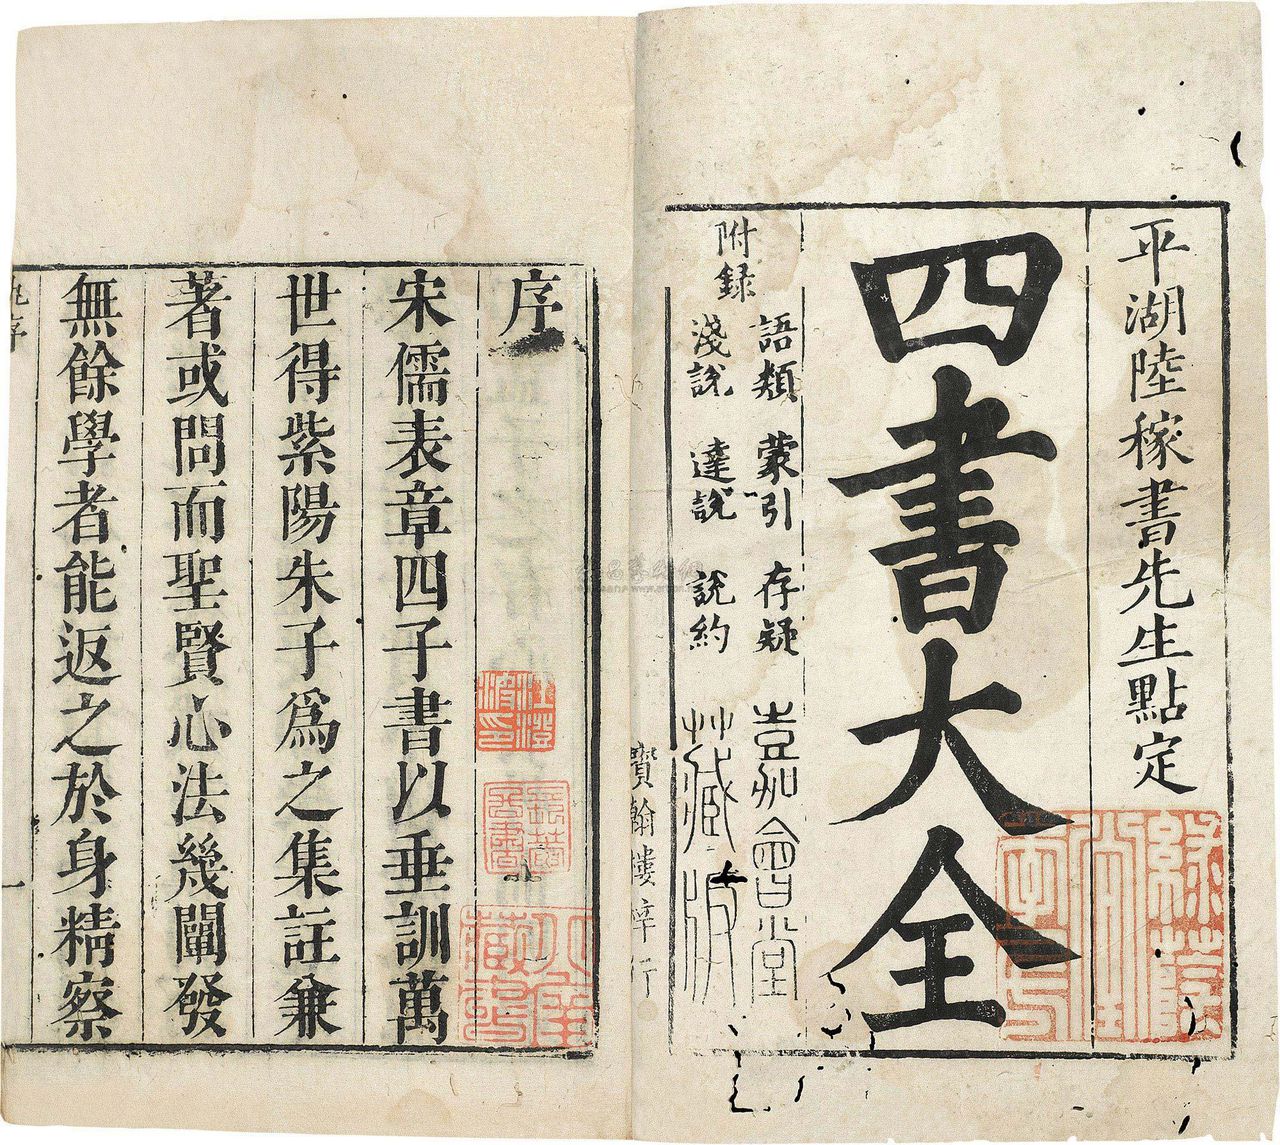 平湖陸稼書先生點定
四書大全
附録
語類 蒙引 存疑
淺說 達說 說約
嘉會堂
藏板
寶翰樓梓行
序
宋儒表章四子書以垂訓萬
世得紫陽朱子爲之集註兼
著或問而聖賢心法幾闡發
無餘學者能返之於身精察